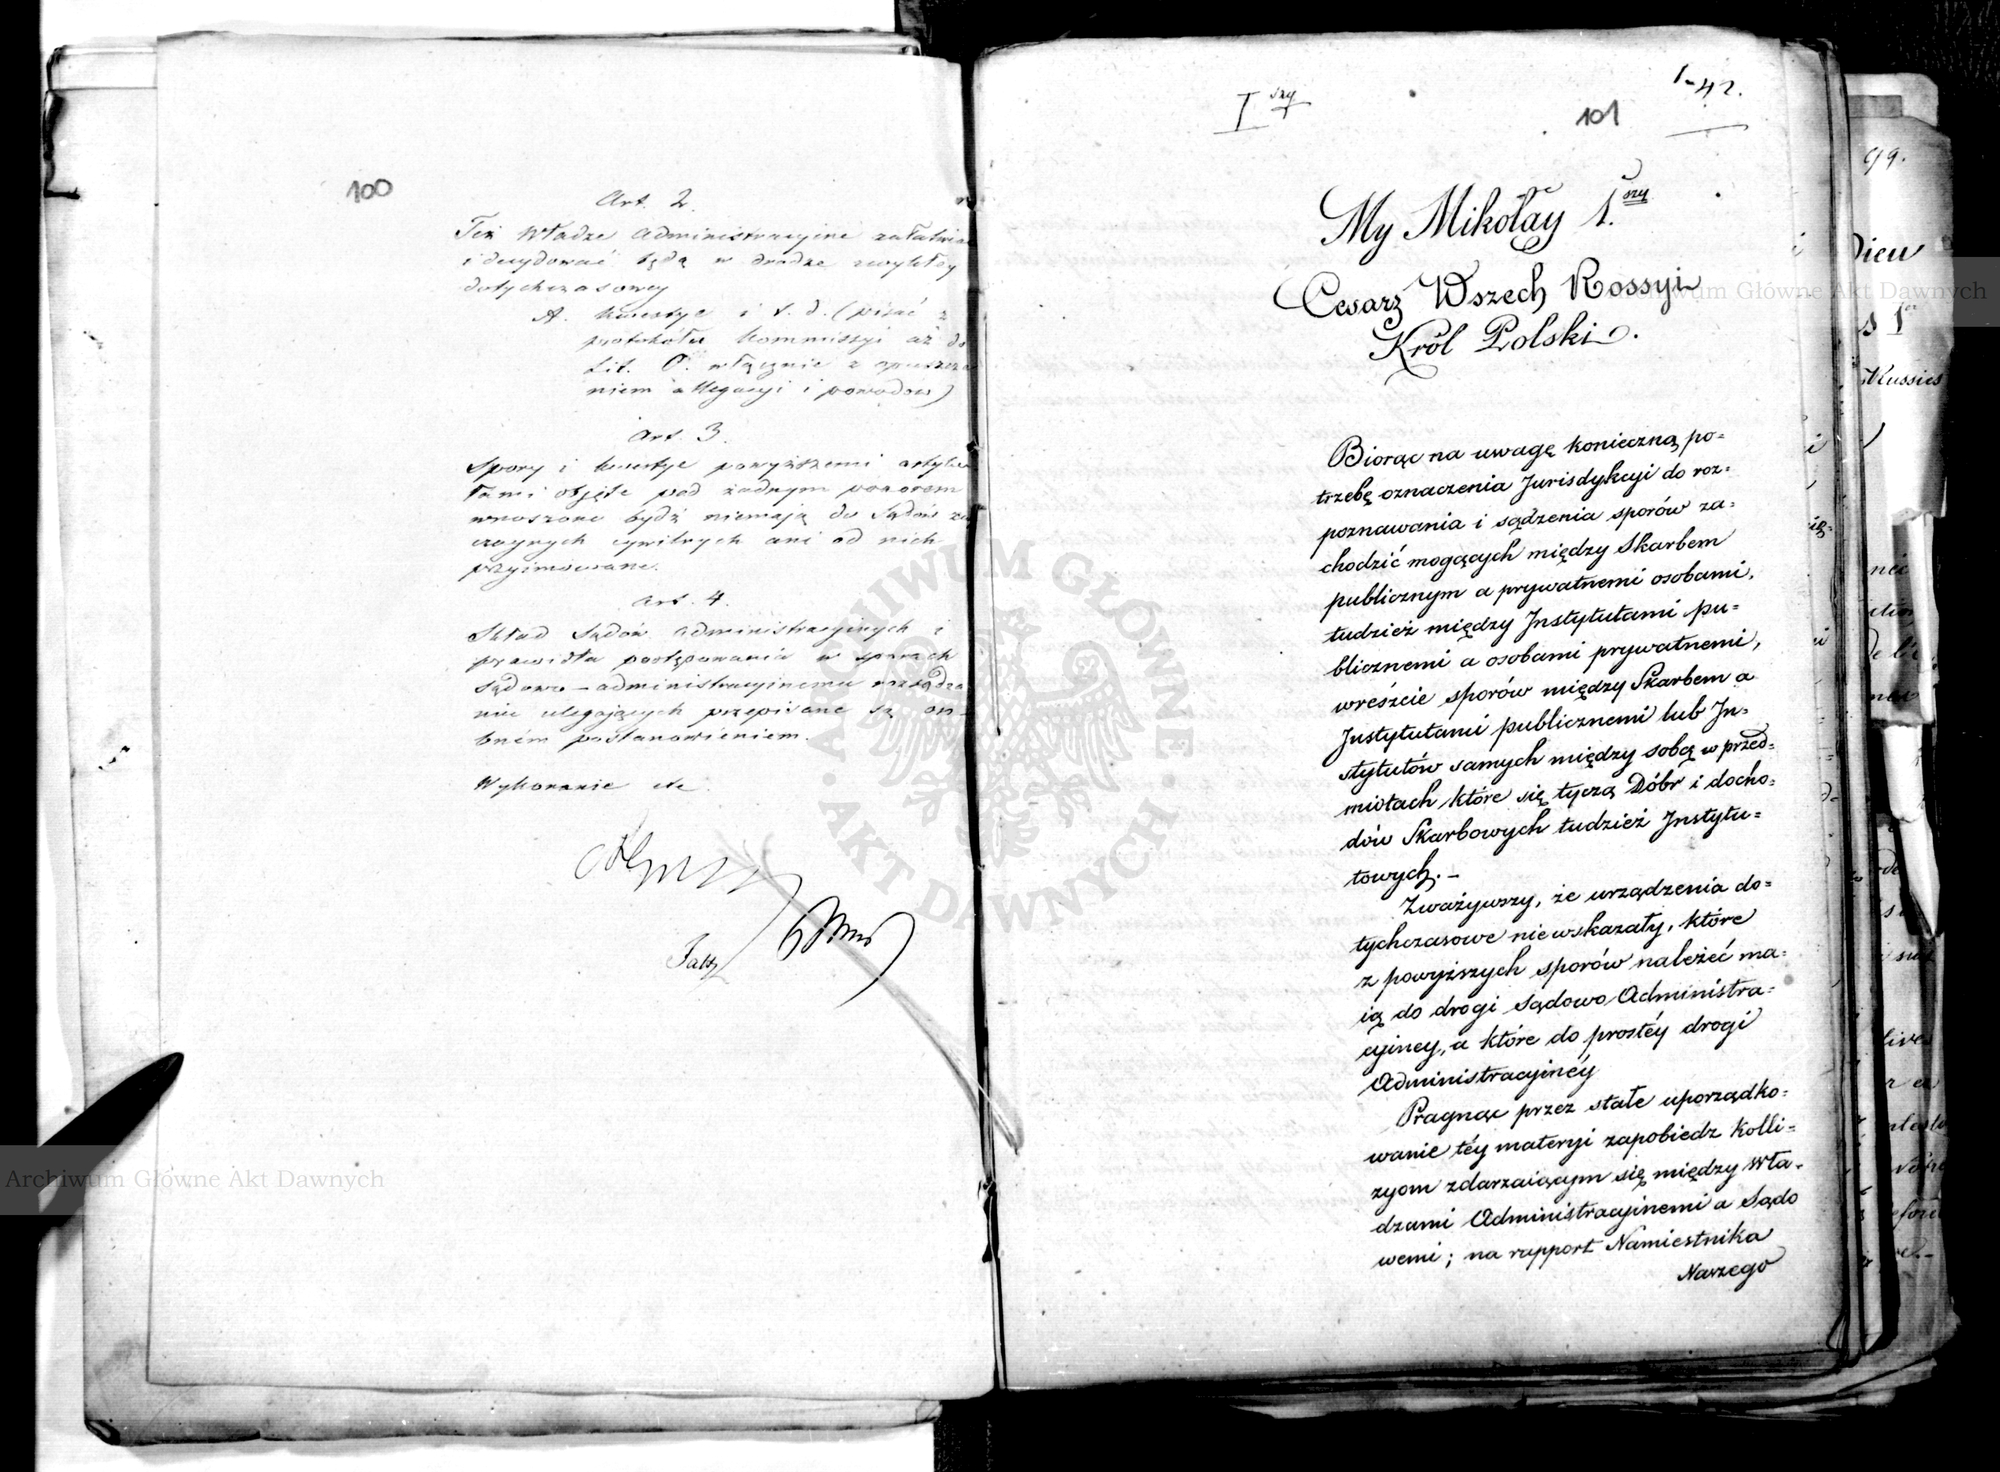 100
Art. 2.
Też Władze administracyjne załatwiać
i decydować będą w drodze zwykłey
dotychczasowey
A. kwestye i t. d. (pisać z
protokółu Kommissyi aż do
Lit. O. włącznie z opuszcze
niem allegacyi i powodów)
Art. 3.
Spory i kwestye powyższemi artyku
łami objęte pod żadnym pozorem
wnoszone bydź niemają do Sądów zwy
czaynych cywilnych ani od nich
przyjmowane.
Art. 4.
Skład Sądów administracyjnych i
prawidła postępowania w sporach
sądowo-administracyjnemu rozsądza
niu ulegających przepisane są oso
bném postanowieniem.
Wykonanie etc.
I szy
1-42.
101
My Mikołay 1. szy
Cesarz Wszech Rossyi
Król Polski.
Biorąc na uwagę konieczną po=
trzebę oznaczenia Jurisdykcyi do roz=
poznawania i sądzenia sporów za=
chodzić mogących między Skarbem
publicznym a prywatnemi osobami,
tudzież między Instytutami pu=
blicznemi a osobami prywatnemi,
wreszcie sporów między Skarbem a
Instytutami publicznemi lub In=
stytutów samych między sobą w przed=
miotach które się tyczą Dóbr i docho=
dów Skarbowych tudzież Instytu=
towych.-
Zważywszy, że urządzenia do=
tychczasowe niewskazały, które
z powyższych sporów należeć ma=
ią do drogi sądowo Administra=
cyiney, a które do prostéy drogi
Administracyinéy
Pragnąc przez stałe uporządko=
wanie téy materyi zapobiedz kolli=
zyom zdarzaiącym się między Wła=
dzami Administracyinemi a Sądo
wemi; na rapport Namiestnika
Naszego
99.
Dieu
Russies
Archiwum Główne Akt Dawnych
Archiwum Główne Akt Dawnych
ARCHIWUM GŁÓWNE · AKT DAWNYCH ·